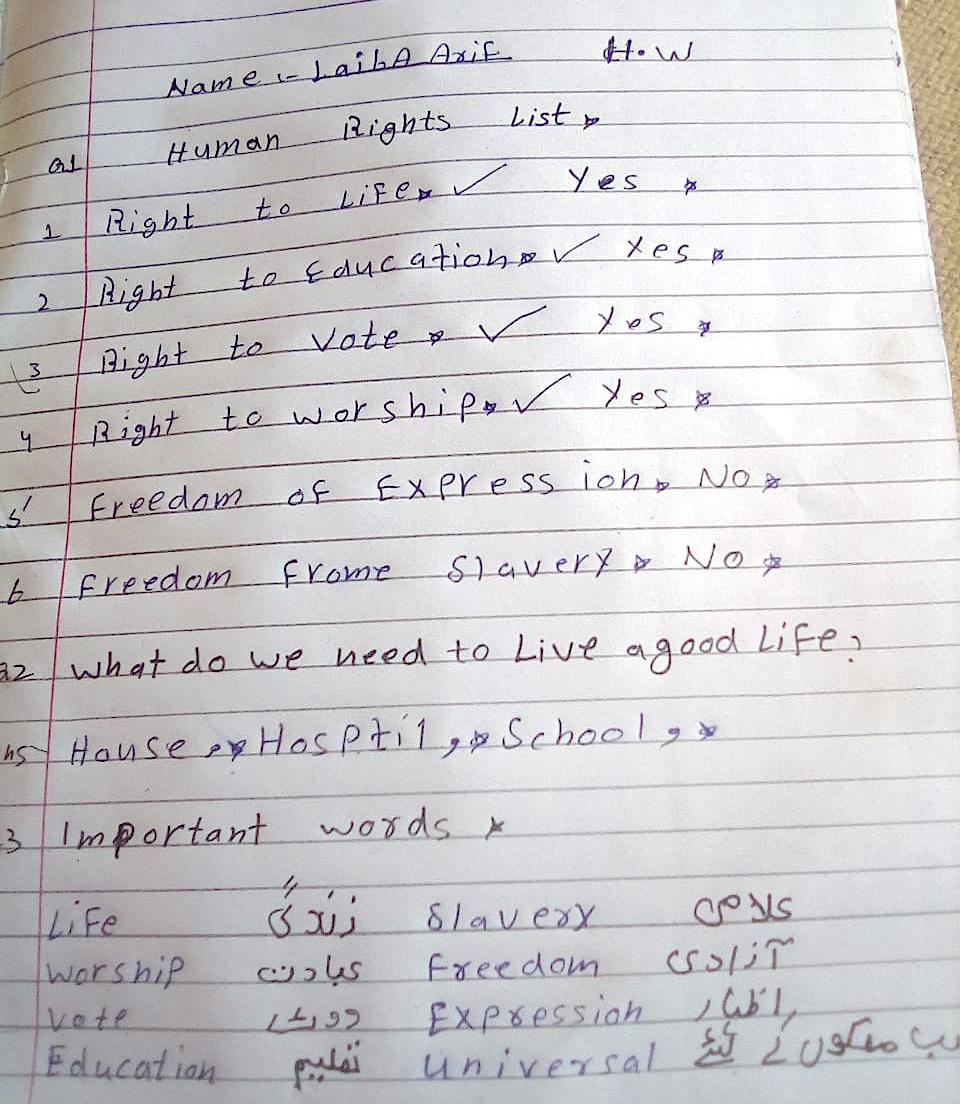 Name :- Laiba Arif H.W
Q1 Human Rights List
1 Right to Life ✓ Yes
2 Right to Education ✓ Yes
3 Right to Vote ✓ Yes
4 Right to worship ✓ Yes
5 Freedom of Expression No
6 Freedom Frome Slavery No
Q2 What do we need to Live a good Life?
ns House, Hosptil, School,
3 Important words
Life زندگی Slavery
Worship عبادت Freedom آزادی
Vote Expression اظہار
Education تعلیم Universal